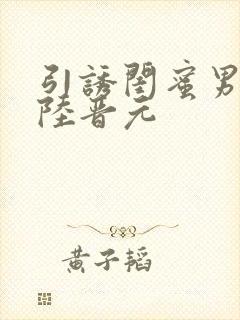 引誘閨蜜男
陸晋元
黄子韬